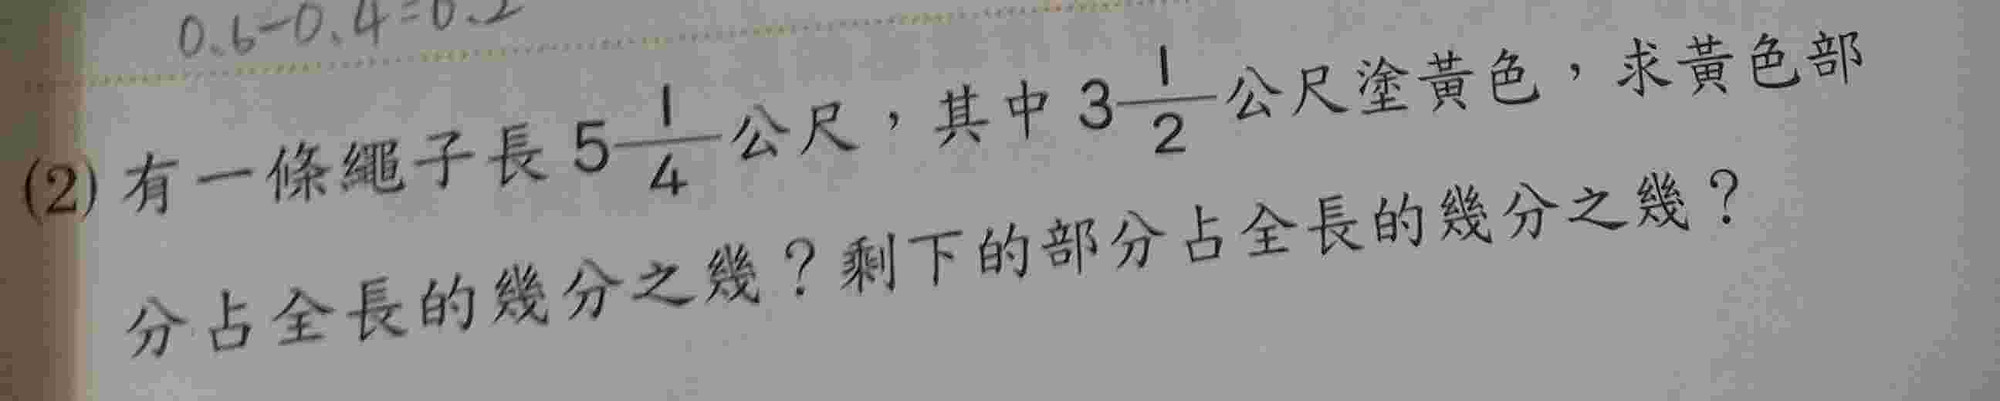 0.6-0.4=0.2
(2) 有一條繩子長 5 1/4 公尺，其中 3 1/2 公尺塗黃色，求黃色部
分占全長的幾分之幾？剩下的部分占全長的幾分之幾？